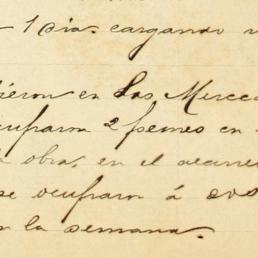 1 dia cargando
en Las Merced
ocuparon 2 peones en
obra, en el acarre
se ocuparon á dos
la semana.